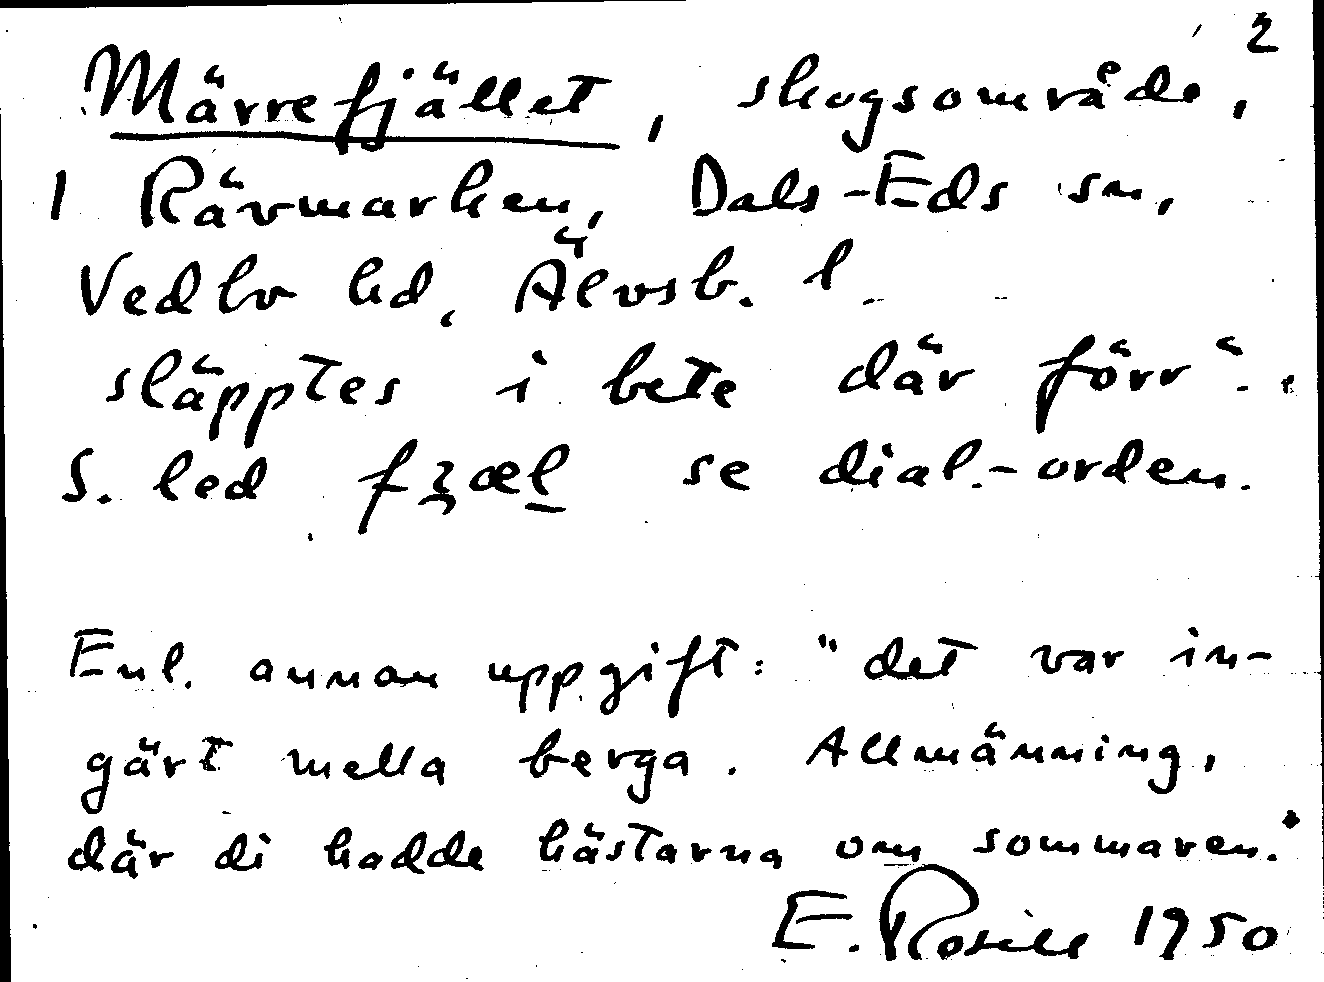 2
Märrefjället, skogsområde,
1 Rävmarken, Dals-Eds sn,
Vedbo hd, Älvsb. l.
släpptes i bete där förr".
S. led fʒæl se dial.-orden.
Enl. annan uppgift: "det var in-
gärt mella berga. Allmänning,
där di hadde hästarna om sommaren."
E. Rosell 1950